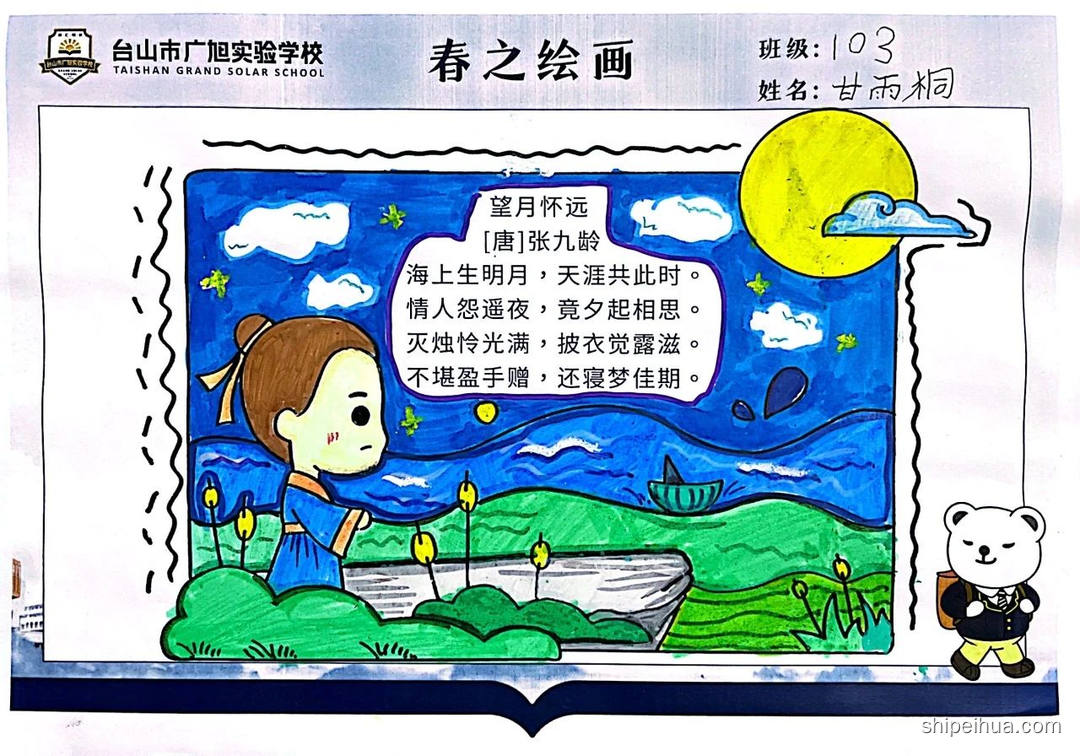 台山市广旭实验学校
TAISHAN GRAND SOLAR SCHOOL
春之绘画
班级：103
姓名：甘雨桐
望月怀远
[唐]张九龄
海上生明月，天涯共此时。
情人怨遥夜，竟夕起相思。
灭烛怜光满，披衣觉露滋。
不堪盈手赠，还寝梦佳期。
shipeihua.com